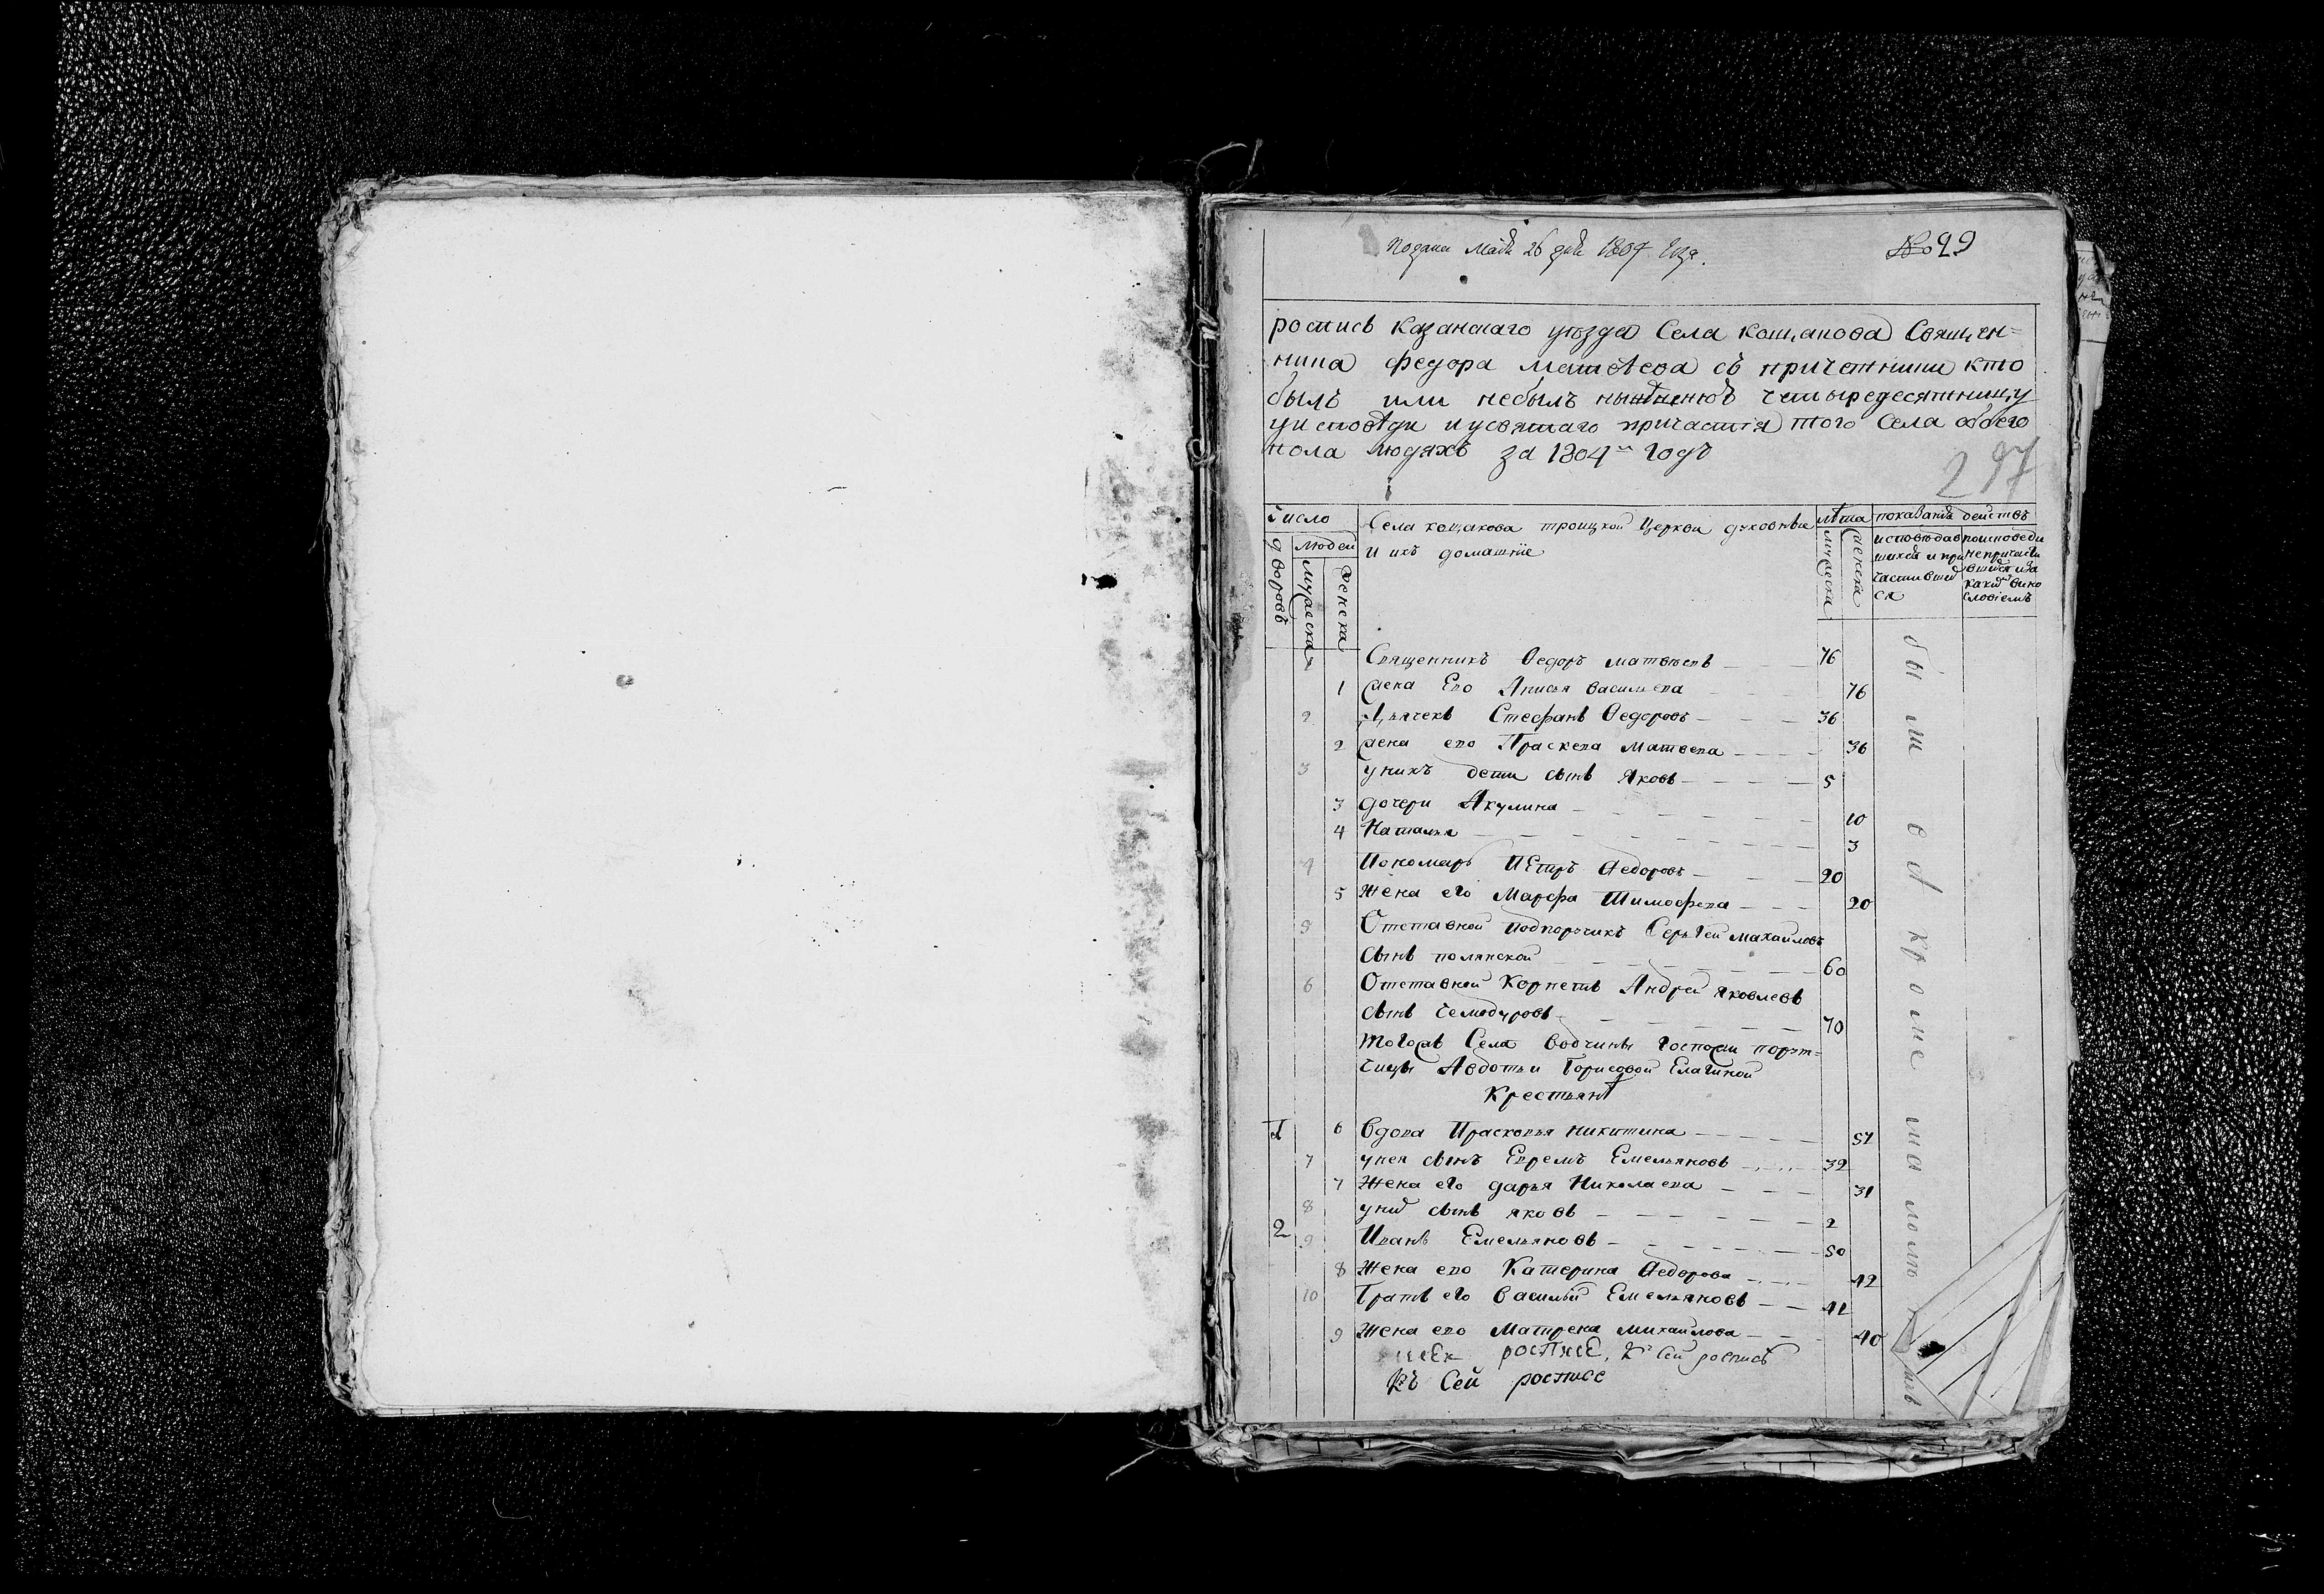 подана маія 26 дня 1807 года.
№ 99
роспись казанскаго уѣзда Села кощакова Священ=
ника федора матвѣева съ причетники кто
былъ или небылъ четыредесятницу
уисповѣди иусвятаго причастія того Села обоего
пола людяхъ за 1804й годъ
297
Число
дворовъ
людей
мужеска
женска
Села кощакова троицкой Церкви духовные
И ихъ домашніе
лѣта
мужеска
женска
показанiе действъ
исповѣдав
шихся и при
частивши
ся
поисповеди
непричасти
вшихся иза
какимъ вино
словіемъ
1 Священникъ Ѳедоръ матвѣевъ 76
1 жена Его Анисья васильева 76
2 Дьячекъ Стефанъ Ѳедоровъ 36
2 жена его Праскева матвеева 36
3 унихъ дети сынъ Яковъ 5
3 дочери Акулина 10
4 Наталья 3
4 Пономарь Петръ Ѳедоровъ 20
5 Жена его Марфа Тимофеева 20
5 Отставной подпорутчикъ Сергей михайловъ
сынъ полянской 60
6 Отставной Корнетъ Андрей яковлевъ
сынъ Чемодуровъ 70
тогожъ Села вотчины госпожи порут=
чицы Авдотьи Борисовой Елагиной
Крестьянѣ
1 6 вдова Прасковья никитина 57
7 унея сынъ Ефремъ Емельяновъ 32
7 Жена его дарья Николаева 31
8 унихъ сынъ яковъ 2
2 9 Иванъ Емельяновъ 50
8 Жена его Катерина Ѳедорова 42
10 Братъ его василей Емельяновъ 41
9 Жена его Матрена михайлова 40
росписе, Къ сей роспись
Къ Сей росписе
были всѣ кроме малолѣ